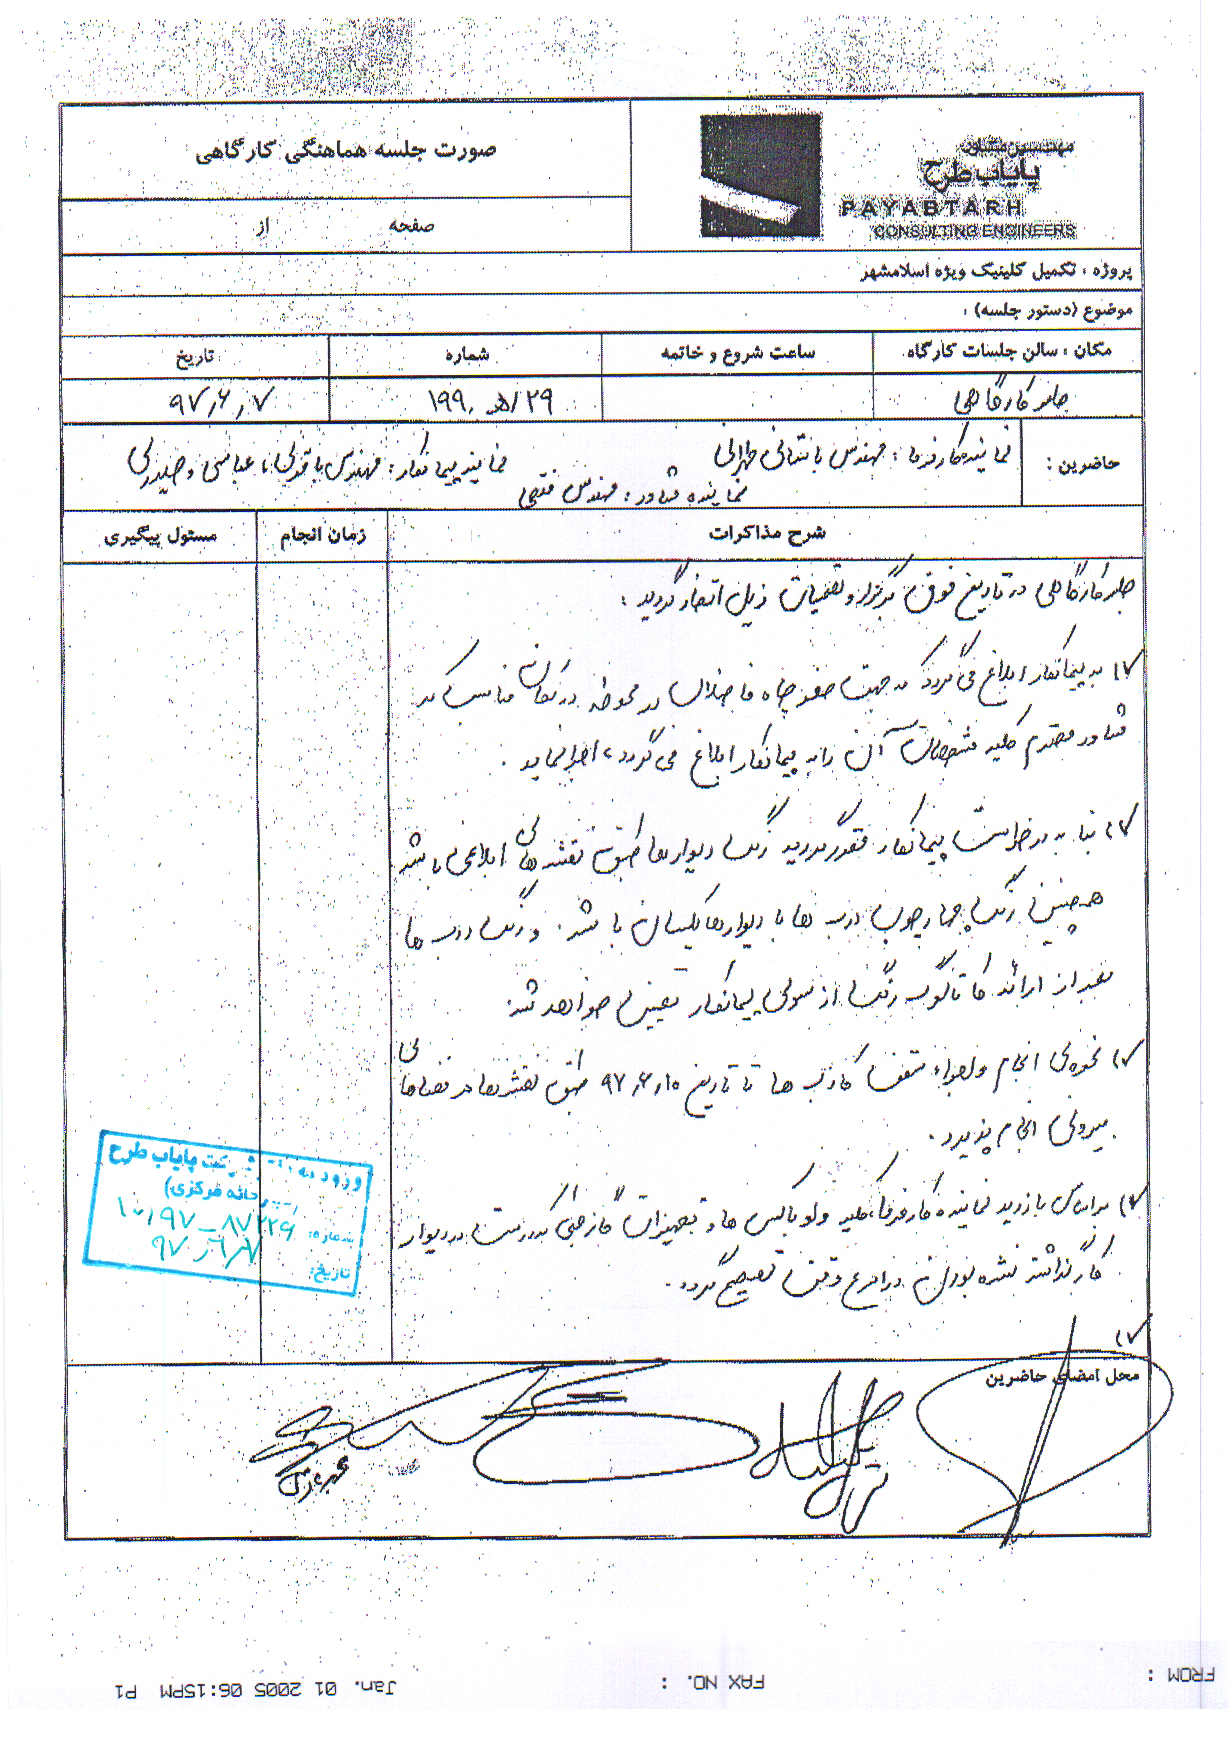 صورت جلسه هماهنگی کارگاهی
صفحه از
مهندسین مشاور
پایاب طرح
PAYABTARH
CONSULTING ENGINEERS
پروژه : تکمیل کلینیک ویژه اسلامشهر
موضوع (دستور جلسه) :
مکان : سالن جلسات کارگاه ساعت شروع و خاتمه شماره تاریخ
جلسه کارگاهی ۱۹۹۰/هـ/۲۹ ۹۷,۶,۷
حاضرین : نماینده کارفرما : مهندس باستانی طهرانی نمایندپیمانکار : مهندس باقولی ، عباسی و حیدری
نماینده مشاور : مهندس فتحی
شرح مذاکرات زمان انجام مسئول پیگیری
جلسه کارگاهی در تاریخ فوق برگزار و تصمیمات ذیل اتخاذ گردید :
۱۷ به پیمانکار ابلاغ می گردد که جهت حفر چاه فاضلاب در محوطه در مکان مناسب که
مشاور محترم کلیه مشخصات آن را به پیمانکار ابلاغ می گردد ، اجرا نماید .
۲۷ بنا به درخواست پیمانکار مقرر گردید رنگ دیوارها طبق نقشه های ابلاغی باشد
همچنین رنگ چهارچوب درب ها با دیوارها یکسان باشد . و رنگ درب ها
بعد از ارائه کاتالوگ رنگ از سوی پیمانکار تعیین خواهد شد.
۳۷ نحوه ی انجام و اجراء سقف کاذب ها تا تاریخ ۹۷,۶,۱۵ طبق نقشه ها در فضاهای
بیرونی انجام پذیرد .
۴۷ براساس بازدید نماینده کارفرما، کلیه ولو باکس ها و تجهیزات گاز طبی که درست در دیوار
کار گذاشته نشده بودن در اسرع وقت تصحیح گردد .
ورود به شرکت پایاب طرح
(دبیرخانه مرکزی)
شماره:
تاریخ:
محل امضای حاضرین
FROM : FAX NO. : Jan. 01 2005 06:15PM P1